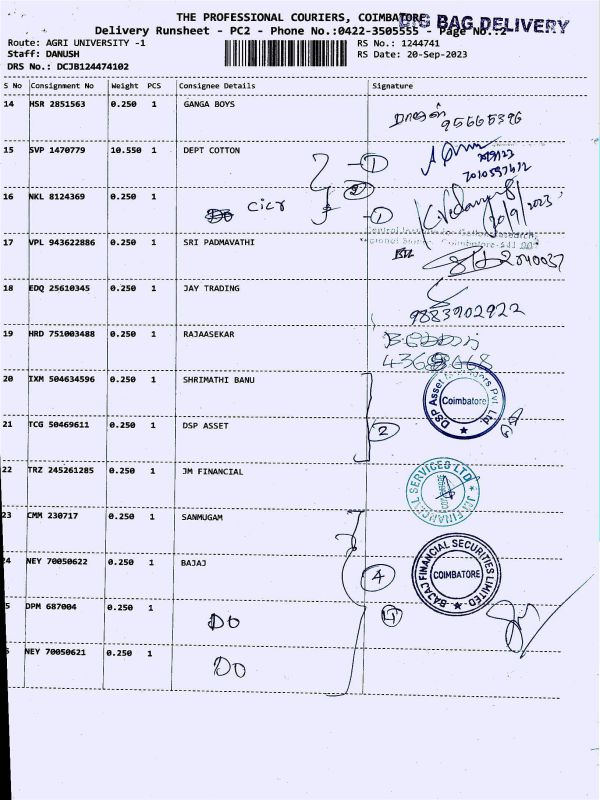 THE PROFESSIONAL COURIERS, COIMBATORE
BIG BAG DELIVERY
Delivery Runsheet - PC2 - Phone No.:0422-3505555 - Page No.:2
Route: AGRI UNIVERSITY -1
RS No.: 1244741
Staff: DANUSH
RS Date: 20-Sep-2023
DRS No.: DCJB124474102
S No Consignment No Weight PCS Consignee Details Signature
14 HSR 2851563 0.250 1 GANGA BOYS
15 SVP 1470779 10.550 1 DEPT COTTON
1
7010597612
2
16 NKL 8124369 0.250 1
Do cicr
1
20/9/2023
Central Institute for Cotton Research,
Regional Station, Coimbatore-641 003
17 VPL 943622886 0.250 1 SRI PADMAVATHI
18 EDQ 25610345 0.250 1 JAY TRADING
9883902922
19 HRD 751003488 0.250 1 RAJAASEKAR
20 IXM 504634596 0.250 1 SHRIMATHI BANU
DSP Asset Managers Pvt Ltd.
Coimbatore
21 TCG 50469611 0.250 1 DSP ASSET
2
22 TRZ 245261285 0.250 1 JM FINANCIAL
JM FINANCIAL SERVICES LTD
23 CMM 230717 0.250 1 SANMUGAM
24 NEY 70050622 0.250 1 BAJAJ
4
BAJAJ FINANCIAL SECURITIES LIMITED
COIMBATORE
5 DPM 687004 0.250 1
Do
NEY 70050621 0.250 1
Do